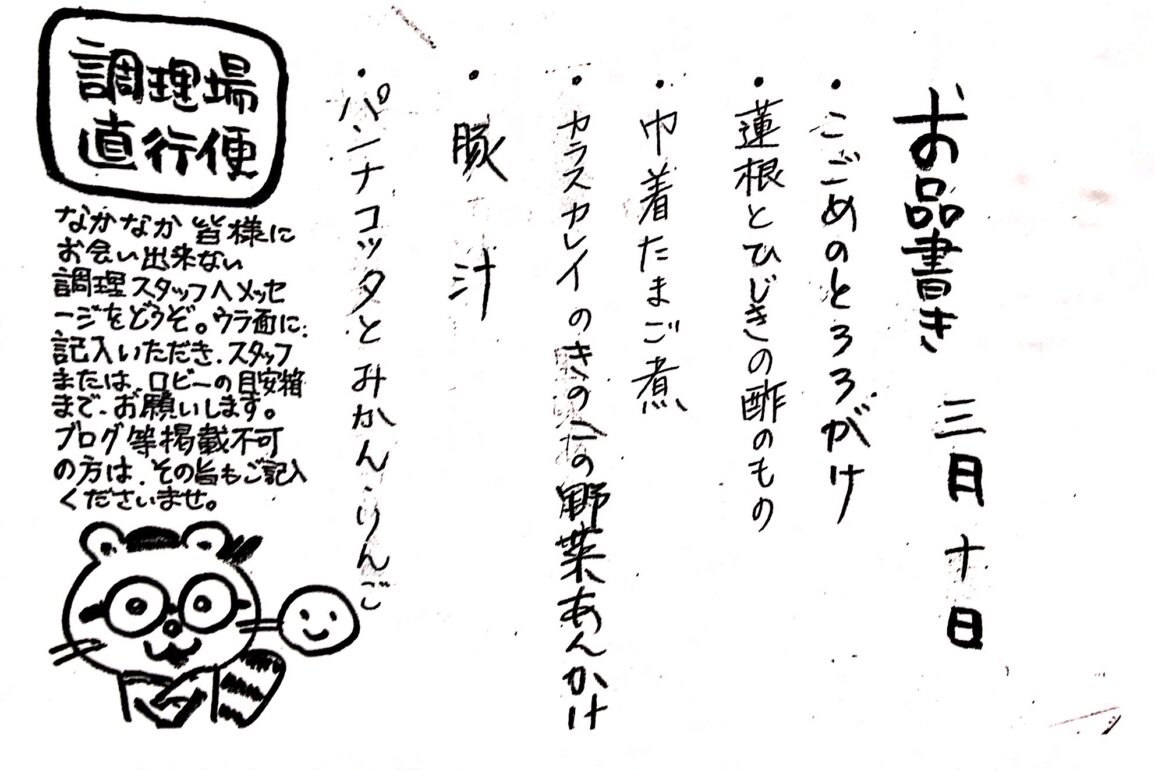 お品書き 三月十日
・こごめのとろろがけ
・蓮根とひじきの酢のもの
・巾着たまご煮
・カラスカレイのきのこの野菜あんかけ
・豚汁
・パンナコッタとみかん・りんご
調理場
直行便
なかなか皆様に
お会い出来ない
調理スタッフへメッセ
ージをどうぞ。ウラ面に
記入いただき、スタッフ
または、ロビーの目安箱
まで、お願いします。
ブログ等掲載不可
の方は、その旨もご記入
くださいませ。